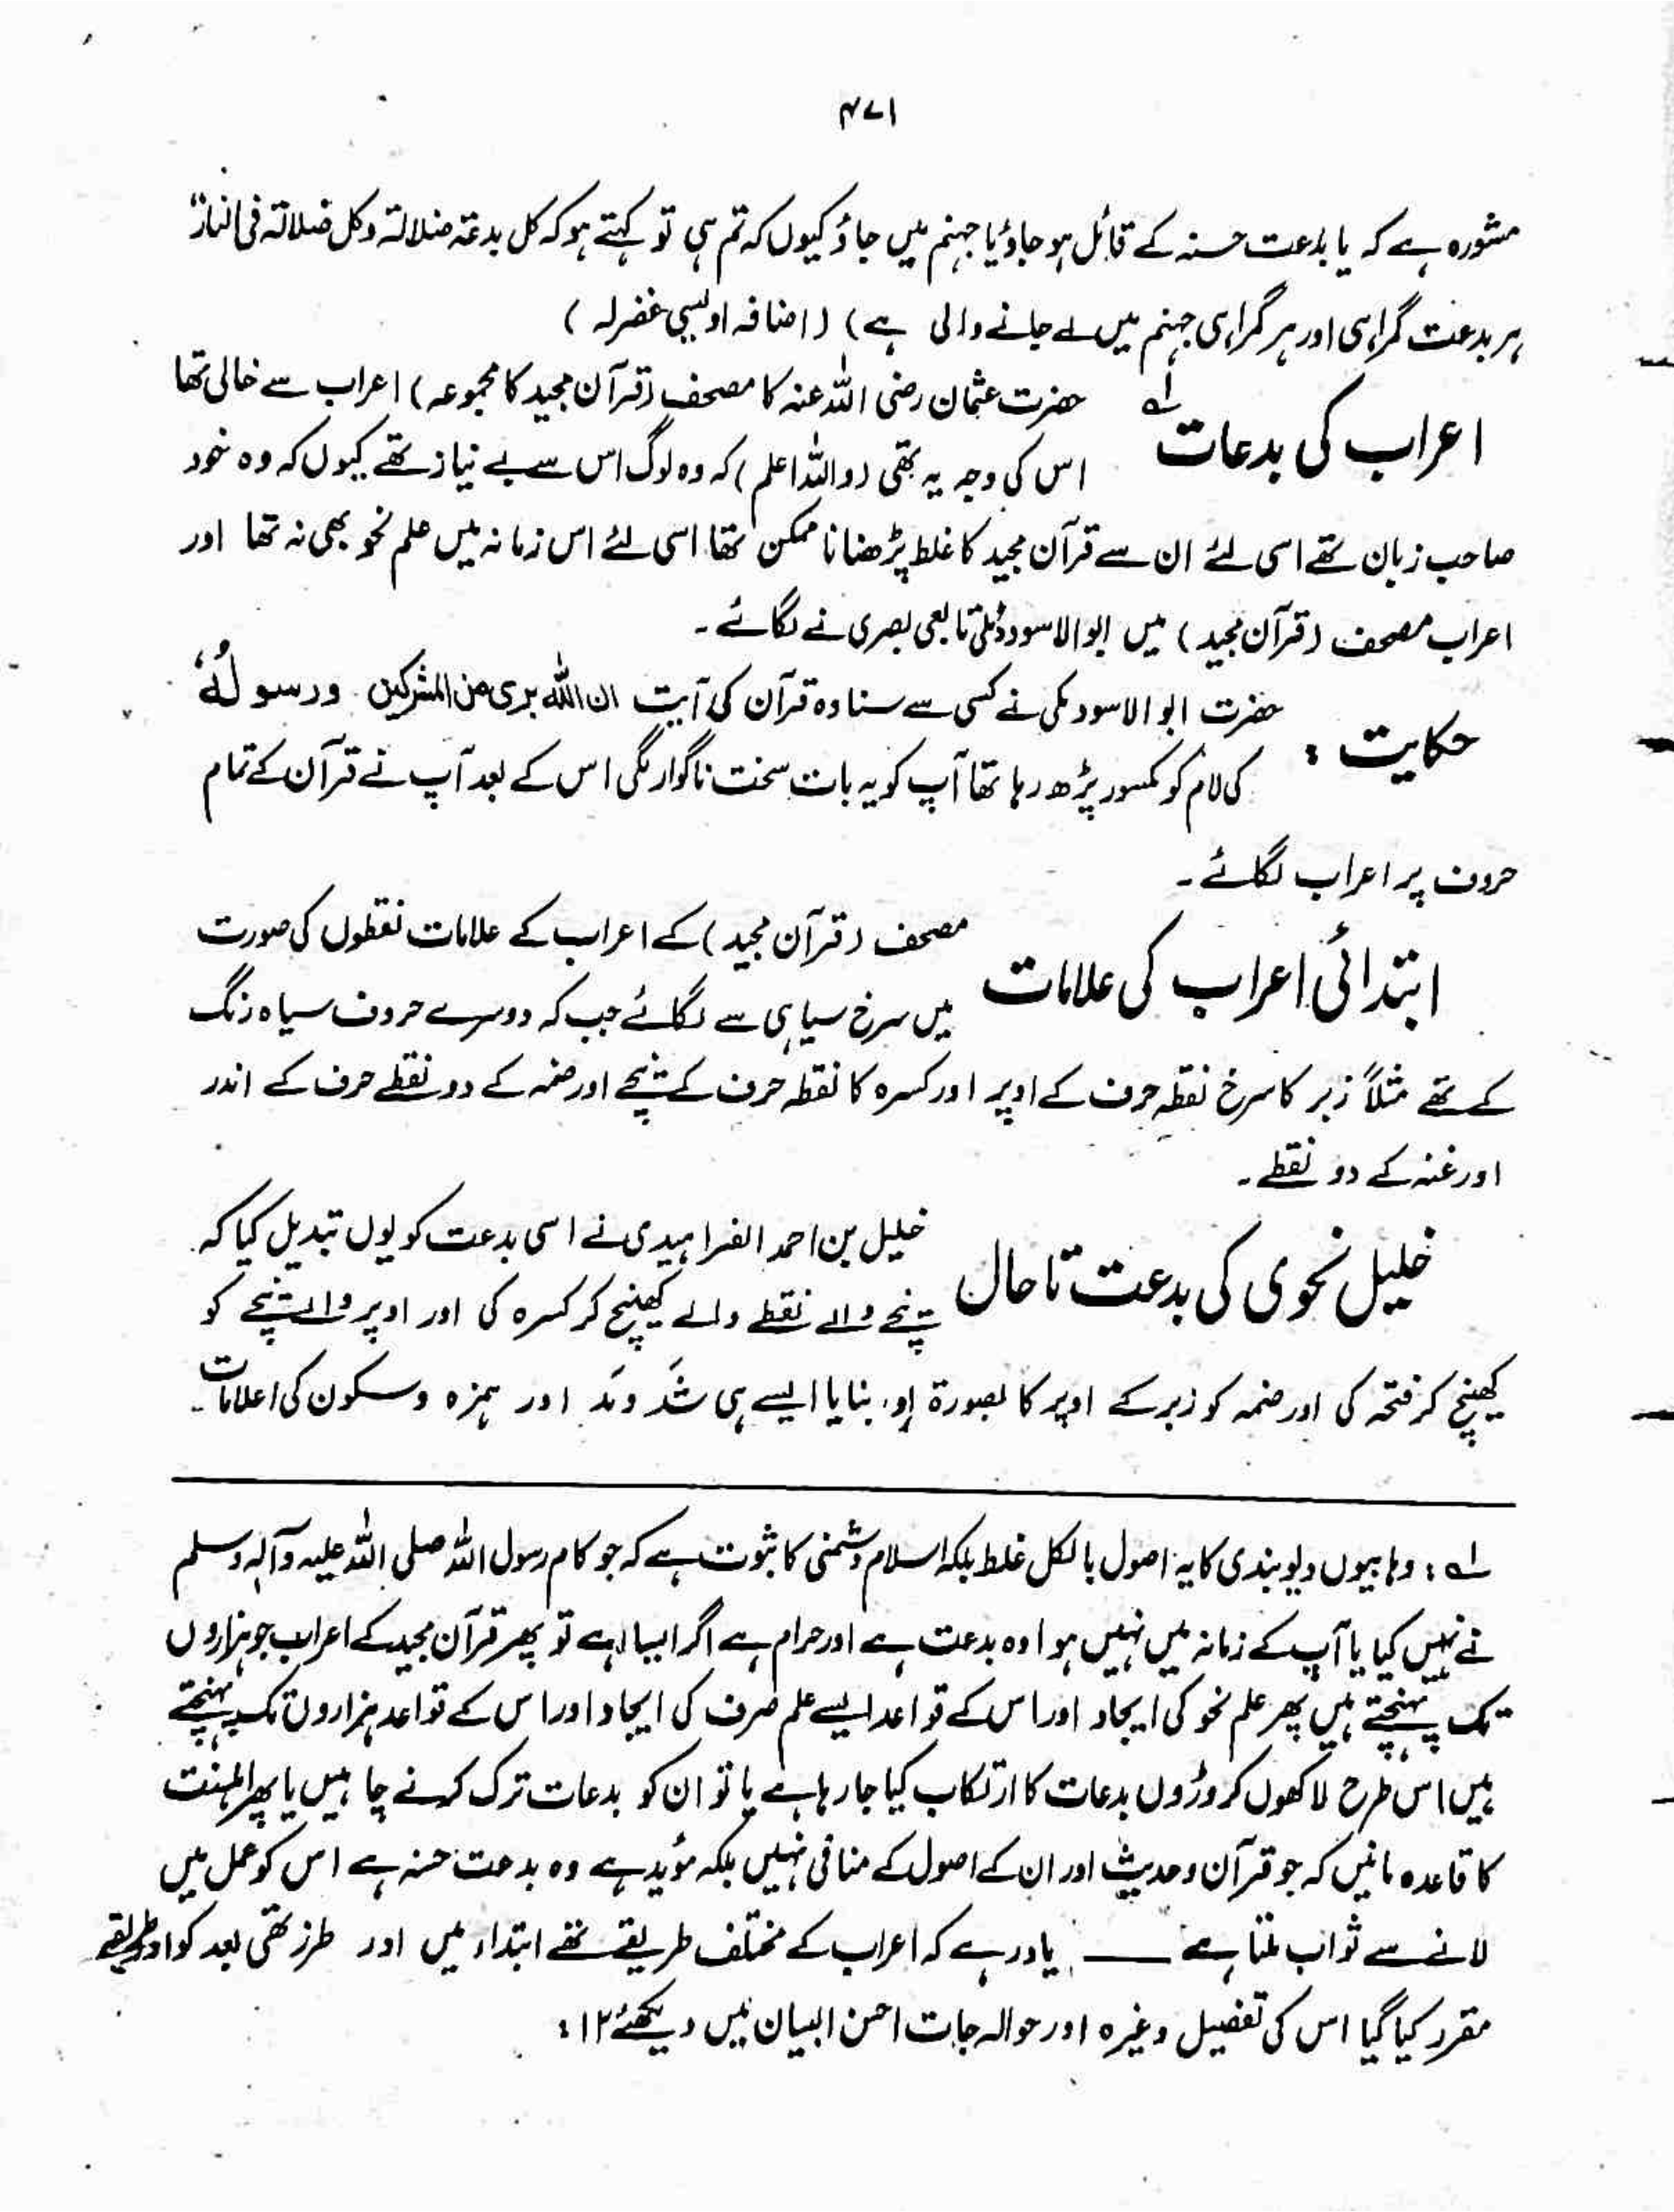 ۴۷۱
مشورہ ہے کہ یا بدعت حسنہ کے قائل ہو جاؤ یا جہنم میں جاؤ کیوں کہ تم ہی تو کہتے ہو کہ کل بدعۃ ضلالۃ وکل ضلالۃ فی النار"
ہر بدعت گمراہی اور ہر گمراہی جہنم میں لے جانے والی ہے) (اضافہ اویسی غفرلہ)
اعراب کی بدعات لہ
حضرت عثمان رضی اللہ عنہ کا مصحف (قرآن مجید کا مجموعہ) اعراب سے خالی تھا
اس کی وجہ یہ تھی (واللہ اعلم) کہ وہ لوگ اس سے بے نیاز تھے کیوں کہ وہ خود
صاحب زبان تھے اسی لئے ان سے قرآن مجید کا غلط پڑھنا نا ممکن تھا اسی لئے اس زمانہ میں علم نحو بھی نہ تھا اور
اعراب مصحف (قرآن مجید) میں ابوالاسود دئلی تابعی بصری نے لگائے۔
حکایت :
حضرت ابوالاسود مکی نے کسی سے سنا وہ قرآن کی آیت ان اللہ بری من المشرکین ورسولُہٗ
کی لام کو مکسور پڑھ رہا تھا آپ کو یہ بات سخت ناگوار لگی اس کے بعد آپ نے قرآن کے تمام
حروف پر اعراب لگائے۔
ابتدائی اعراب کی علامات
مصحف (قرآن مجید) کے اعراب کے علامات نقطوں کی صورت
میں سرخ سیاہی سے لگائے جب کہ دوسرے حروف سیاہ رنگ
کے تھے مثلاً زبر کا سرخ نقطہ حرف کے اوپر اور کسرہ کا نقطہ حرف کے نیچے اور ضمہ کے دو نقطے حرف کے اندر
اور غنہ کے دو نقطے۔
خلیل نحوی کی بدعت تا حال
خلیل بن احمد الفراہیدی نے اسی بدعت کو یوں تبدیل کیا کہ
نیچے والے نقطے والے کھینچ کر کسرہ کی اور اوپر والے نیچے کو
کھینچ کر فتحہ کی اور ضمہ کو زبر کے اوپر کا بصورۃ واو بنایا ایسے ہی شَد ومَد اور ہمزہ وسکون کی اعلامات۔
لہ : وہابیوں دیوبندی کا یہ اصول بالکل غلط بلکہ اسلام دشمنی کا ثبوت ہے کہ جو کام رسول اللہ صلی اللہ علیہ وآلہ وسلم
نے نہیں کیا یا آپ کے زمانہ میں نہیں ہوا وہ بدعت ہے اور حرام ہے اگر ایسا ہے تو پھر قرآن مجید کے اعراب جو ہزاروں
تک پہنچتے ہیں پھر علم نحو کی ایجاد اور اس کے قواعد ایسے علم صرف کی ایجاد اور اس کے قواعد ہزاروں تک پہنچتے
ہیں اس طرح لاکھوں کروڑوں بدعات کا ارتکاب کیا جا رہا ہے یا تو ان کو بدعات ترک کرنے چاہئیں یا پھر اہلسنت
کا قاعدہ مانیں کہ جو قرآن وحدیث اور ان کے اصول کے منافی نہیں بلکہ مؤید ہے وہ بدعت حسنہ ہے اس کو عمل میں
لانے سے ثواب ملتا ہے —— یاد رہے کہ اعراب کے مختلف طریقے تھے ابتداء میں اور طرز تھی بعد کو اور طریقے
مقرر کیا گیا اس کی تفصیل وغیرہ اور حوالہ جات احسن البیان میں دیکھئے ۱۲ :